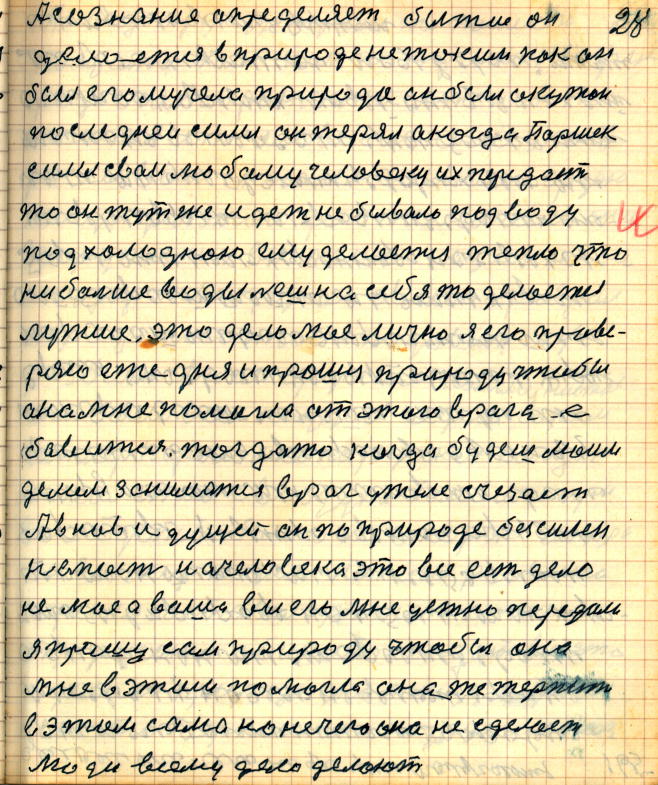 28
А сознание определяет бытие он
делается в природе не таким как он
был его мучела природа он был окужон
последнеи силы он терял а когда Паршек
силы свои любому человеку их передает
то он тут же идет не бывало под воду
под холодною ему делается тепло что
ни балше воды леш на себя то делается
лутше. это дело мое лично я его прове-
ряю еже дня и прошу природу чтобы
она мне помогла от этого врага
бавится. тогда то когда будеш моим
делем заниматся враг у теле счезает
А внов идущет он по природе безсилен
на человека это все ест дело
не мое а ваша вы его мне устно передали
я прошу сам природу чтобы она
мне в этом помогла она же терпит
в этом сама но нечего она не сделает
люди всему дело делают